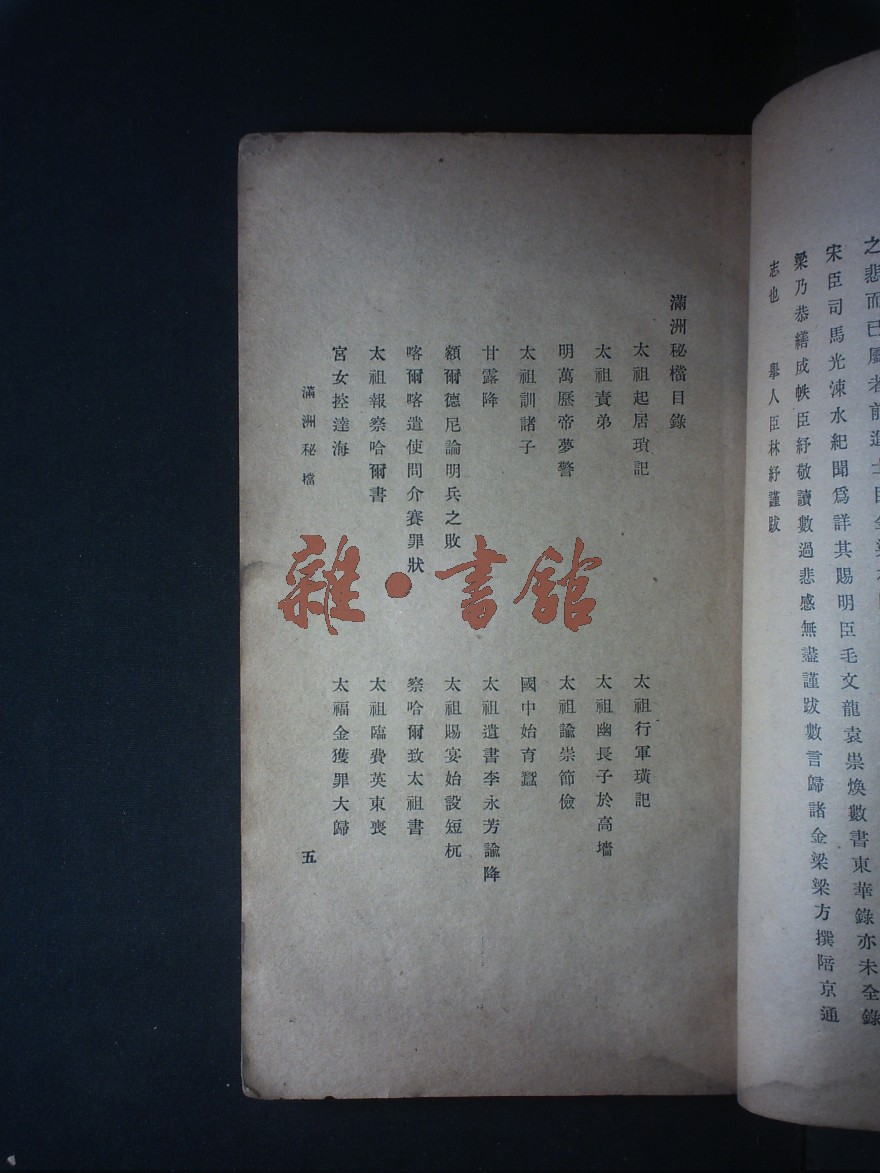 之悲而已
宋臣司馬光涑水紀聞爲詳其賜明臣毛文龍袁崇煥數書東華錄亦未全錄
梁乃恭繕成帙臣紓敬讀數過悲感無盡謹跋數言歸諸金梁梁方撰陪京通
志也 舉人臣林紓謹跋
滿洲秘檔目錄
太祖起居瑣記 太祖行軍瑣記
太祖責弟 太祖幽長子於高墻
明萬歷帝夢警 太祖諭崇節儉
太祖訓諸子 國中始育蠶
甘露降 太祖遺書李永芳諭降
額爾德尼論明兵之敗 太祖賜宴始設短杌
喀爾喀遣使問介賽罪狀 察哈爾致太祖書
太祖報察哈爾書 太祖臨費英東喪
宮女控達海 太福金獲罪大歸
滿洲秘檔 五
雜·書館